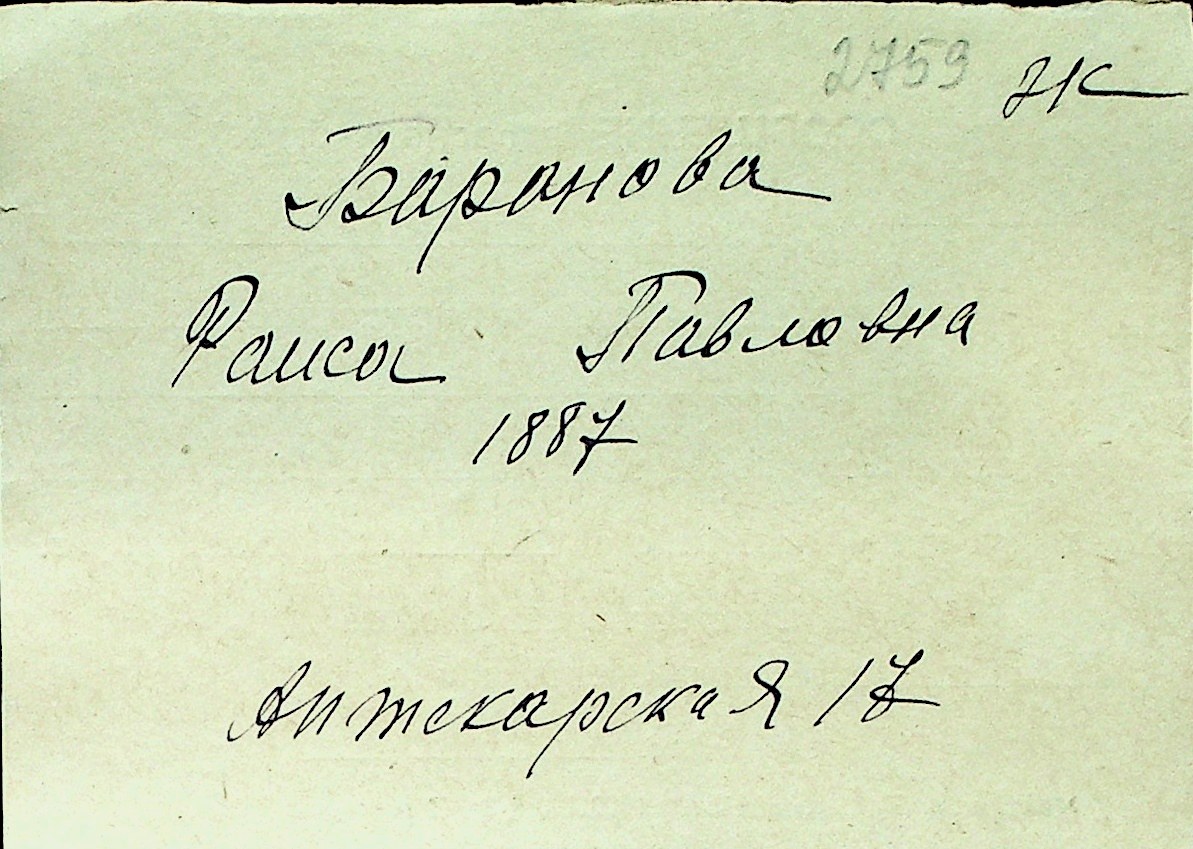 2759 ЖК
Баранова
Раиса Павловна
1887
Аптекарская 17